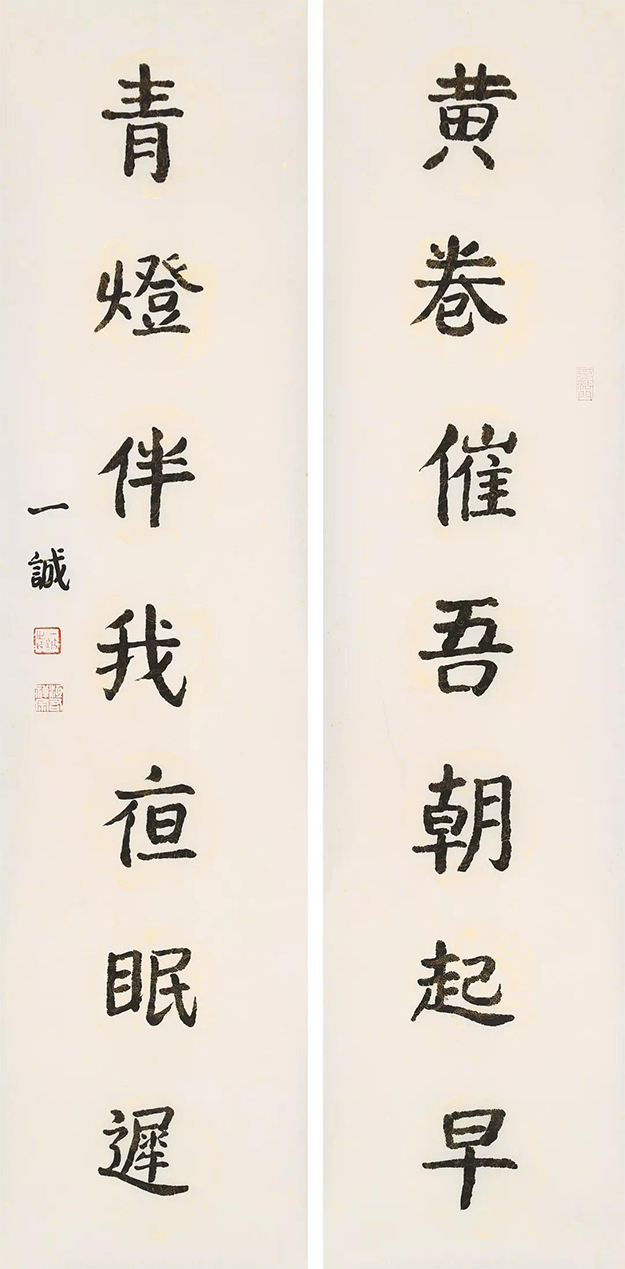 黄卷催吾朝起早
青燈伴我夜眠遲
一誠